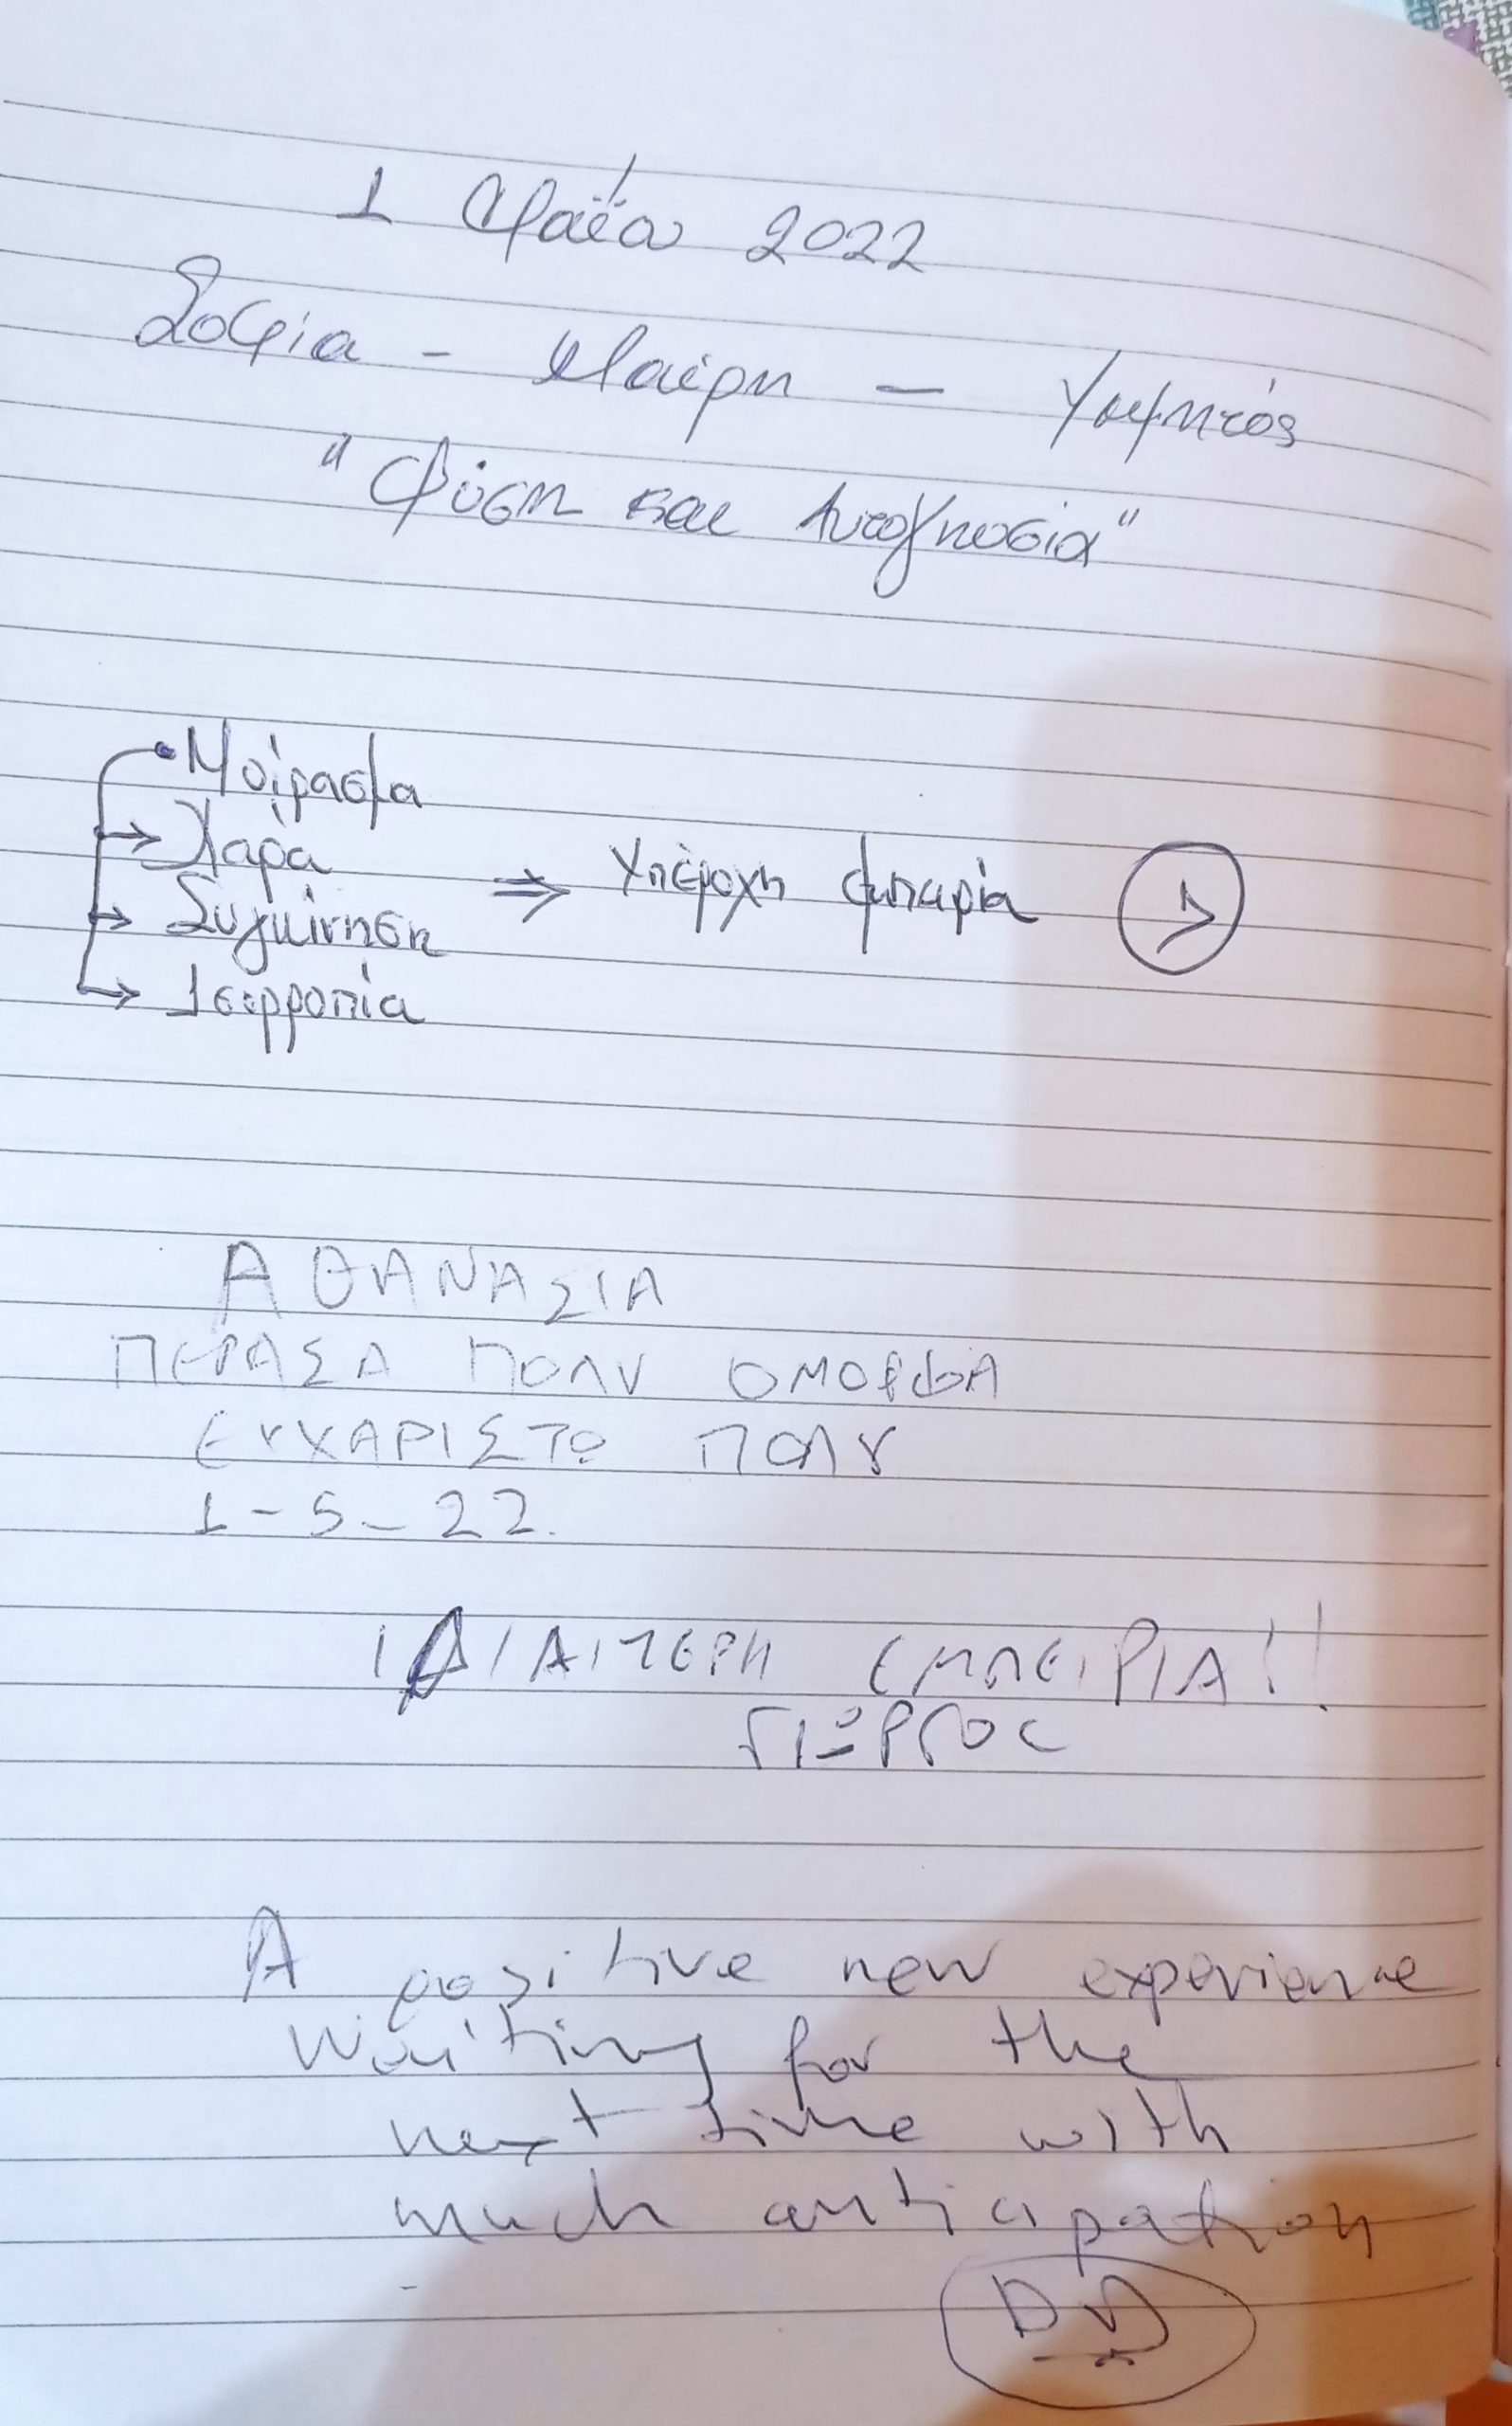 1 Μαΐου 2022
Σοφία - Μαίρη - Υμηττός
"Φύση και Αυτογνωσία"
Μοίρασμα
Χαρά
Συγκίνηση ⇒ Υπέροχη εμπειρία
Ισορροπία
ΑΘΑΝΑΣΙΑ
ΠΕΡΑΣΑ ΠΟΛΥ ΟΜΟΡΦΑ
ΕΥΧΑΡΙΣΤΩ ΠΟΛΥ
1-5-22.
ΙΔΙΑΙΤΕΡΗ ΕΜΠΕΙΡΙΑ!!
ΓΙΩΡΓΟΣ
A positive new experience
Waiting for the
next time with
much anticipation